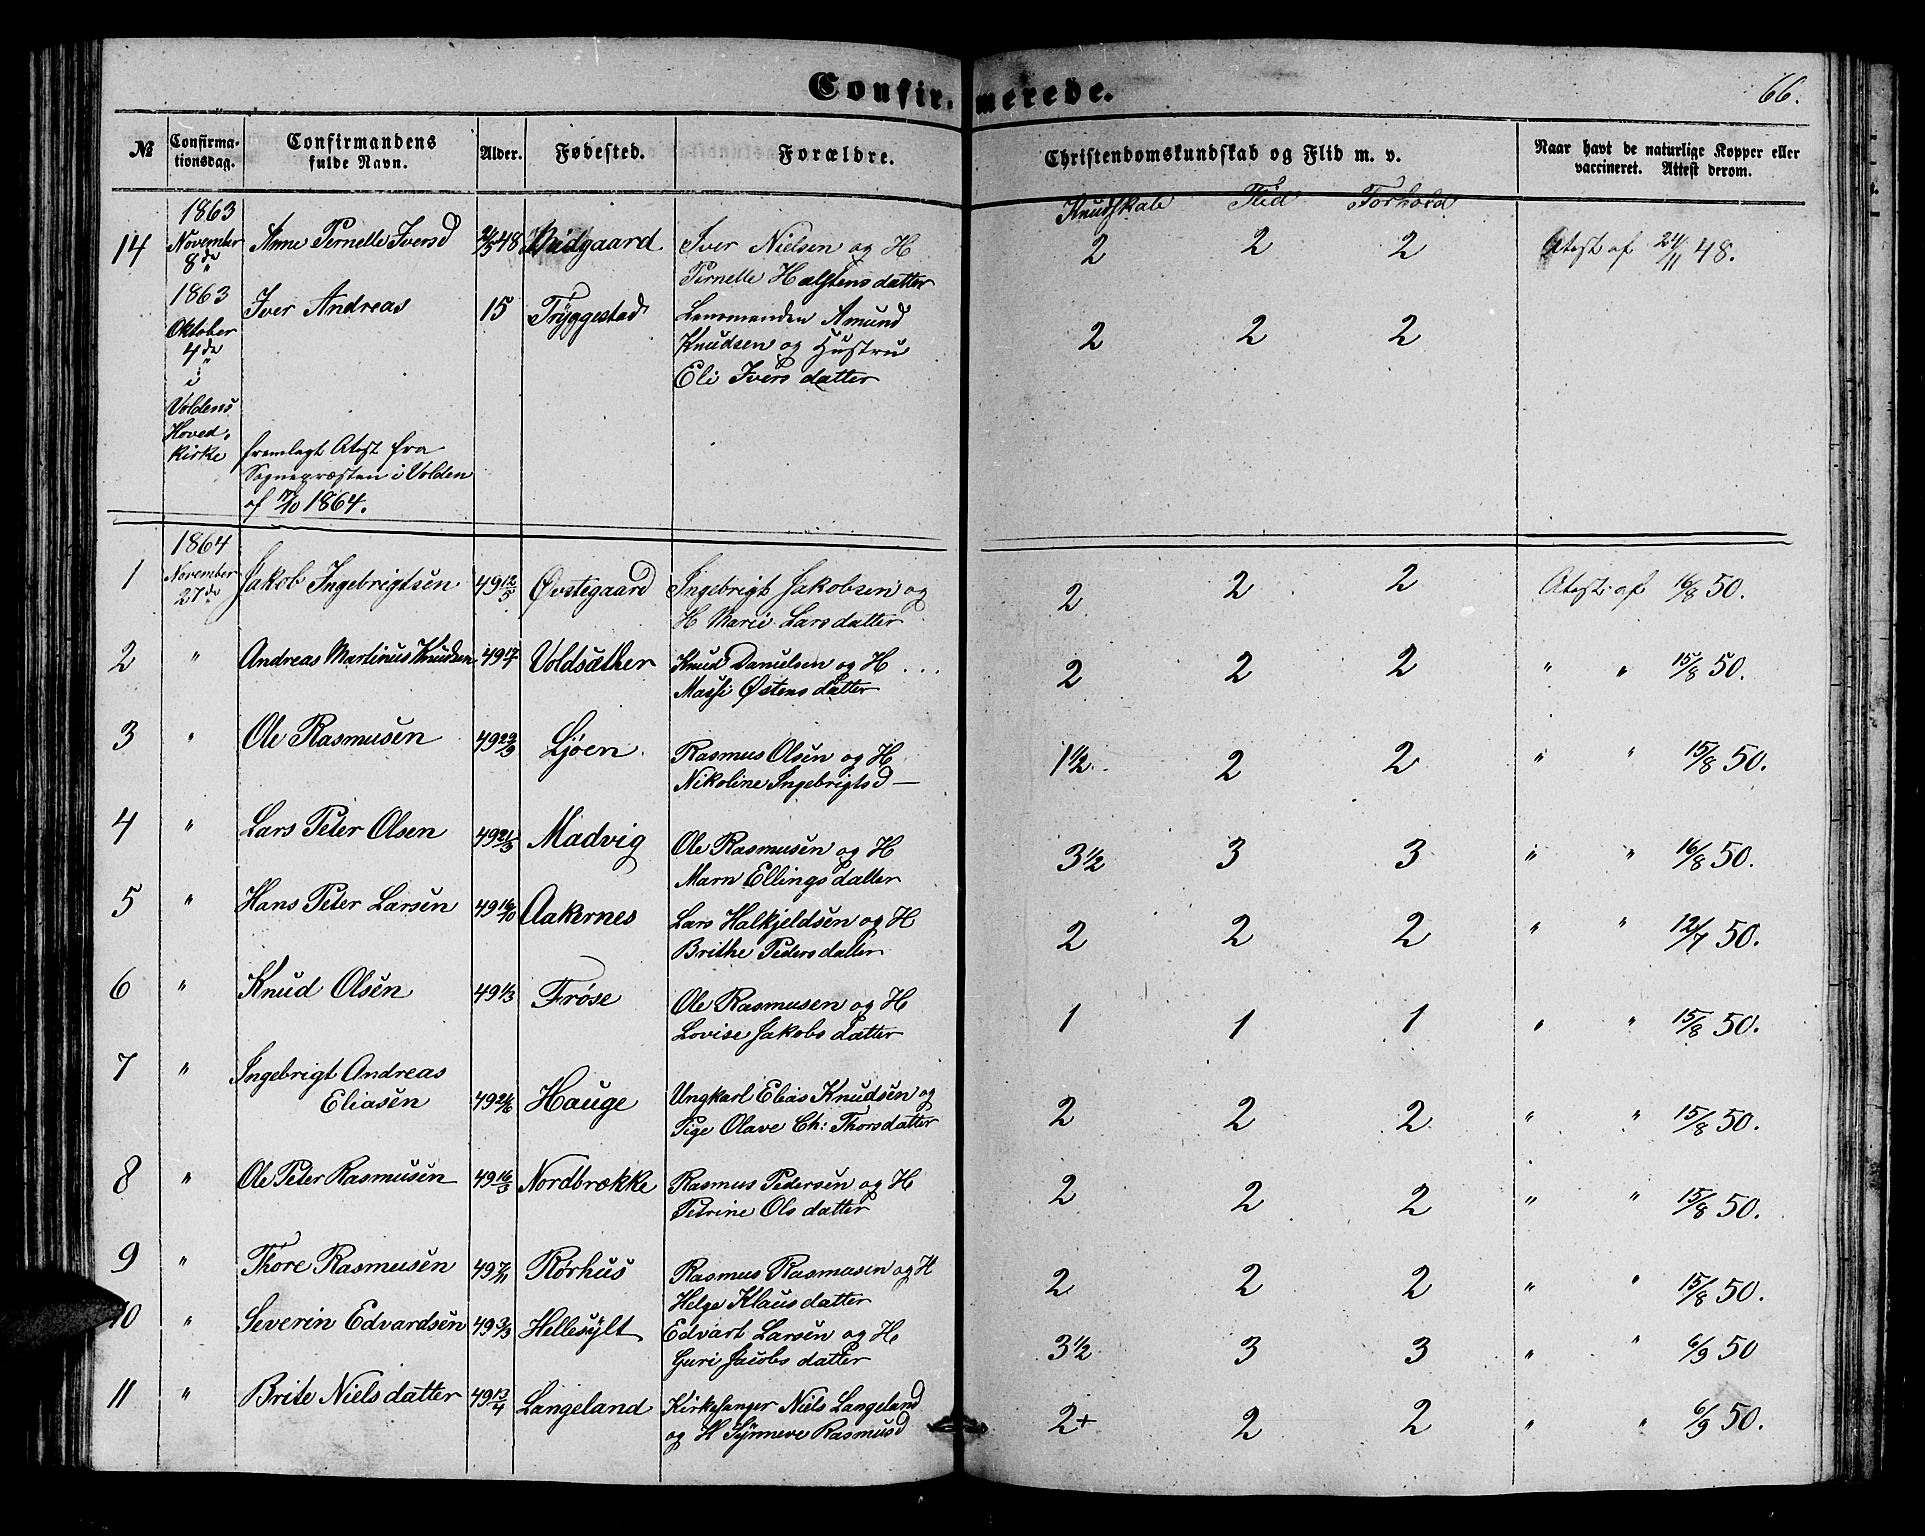 Confirmerede.
66.
№ Confirmationsdag. Confirmandens fulde Navn. Alder. Fødested. Forældre. Christendomskundskab og Flid m. v. Naar havt de naturlige Kopper eller vaccineret. Attest derom.
Kundskab Flid Forhold
14 1863 November 8de Anne Pernelle Iversd 48 Iver Nielsen og H 2 2 2 Atest af 24/11 48.
Pernelle Halstensdatter
1863 Oktober 4de i Voldens Hoved-kirke Iver Andreas 15 Tryggestad Lensmanden Amund 2 2 2
Knudsen og Hustru
Eli Iversdatter
fremlagt Atest fra
Sognepræsten i Volden
af 17/10 1864.
1 1864 November 27de Jakob Ingebrigtsen 49 12/5 Øvstegaard Ingebrigt Jakobsen og 2 2 2 Atest af 16/8 50.
H Marie Larsdatter
2 " Andreas Martinus Knudsen 49 Voldsæther Knud Danielsen og H 2 2 2 " " 15/8 50.
Massi Østensdatter
3 " Ole Rasmusen 49 29/3 Ljøen Rasmus Olsen og H 1½ 2 2 " " 15/8 50.
Nikoline Ingebrigtsd
4 " Lars Peter Olsen 49 21/5 Madvig Ole Rasmusen og H 3½ 3 3 " " 16/8 50.
Marn Ellingsdatter
5 " Hans Peter Larsen 49 16/10 Aakernes Lars Halkjeldsen og H 2 2 2 " " 12/7 50.
Brithe Pedersdatter
6 " Knud Olsen 49 1/3 Frøse Ole Rasmusen og H 1 1 1 " " 15/8 50.
Lovise Jakobsdatter
7 " Ingebrigt Andreas
Eliasen 49 24/6 Hauge Ungkarl Elias Knudsen og 2 2 2 " " 15/8 50.
Pige Olave Ch: Thorsdatter
8 " Ole Peter Rasmusen 49 16/3 Nordbrække Rasmus Pedersen og H 2 2 2 " " 15/8 50.
Petrine Olsdatter
9 " Thore Rasmusen 49 7/11 Rørhus Rasmus Rasmusen og H 2 2 2 " " 15/8 50.
Helge Klausdatter
10 " Severin Edvardsen 49 3/3 Hellesylt Edvart Larsen og H 3½ 3 3 " " 6/9 50
Guri Jacobsdatter
11 " Brite Nielsdatter 49 13/4 Langeland Kirkesanger Niels Langeland 2+ 2 2 " " 6/9 50.
og H Synneve Rasmusd